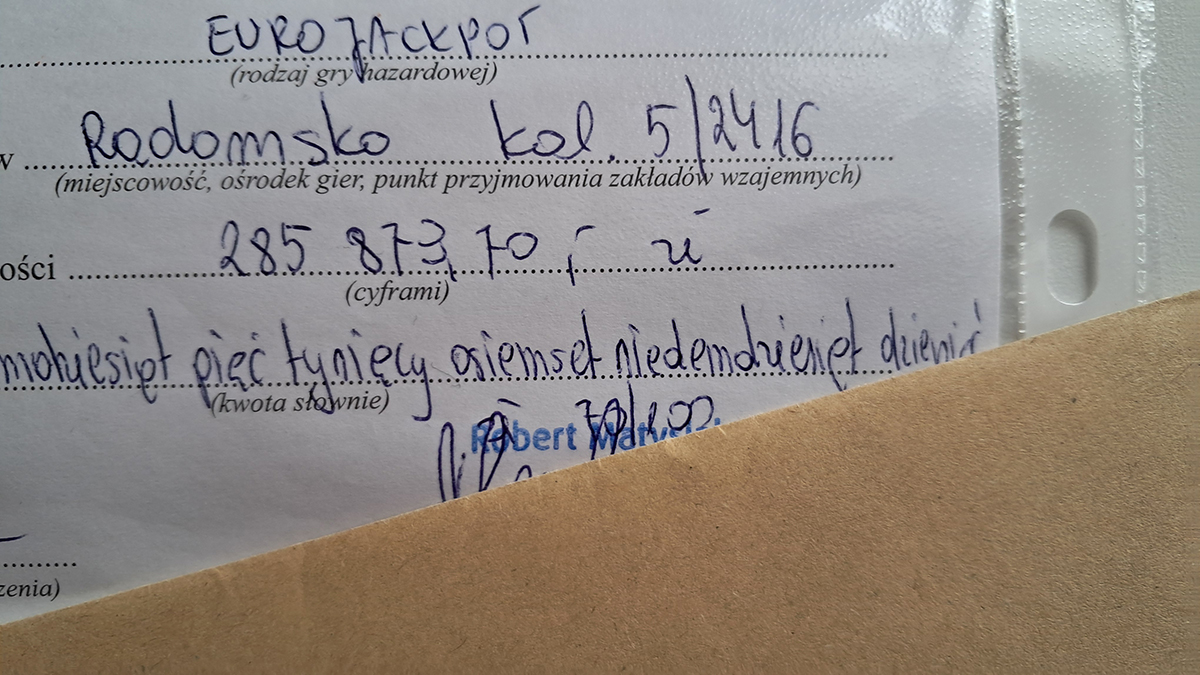 EUROJACKPOT
(rodzaj gry hazardowej)
w Radomsko kol. 5/2416
(miejscowość, ośrodek gier, punkt przyjmowania zakładów wzajemnych)
ości 285 873,70,- zł
(cyframi)
pięć tysięcy osiemset siedemdziesiąt
(kwota słownie)
70/100
Robert
zenia)